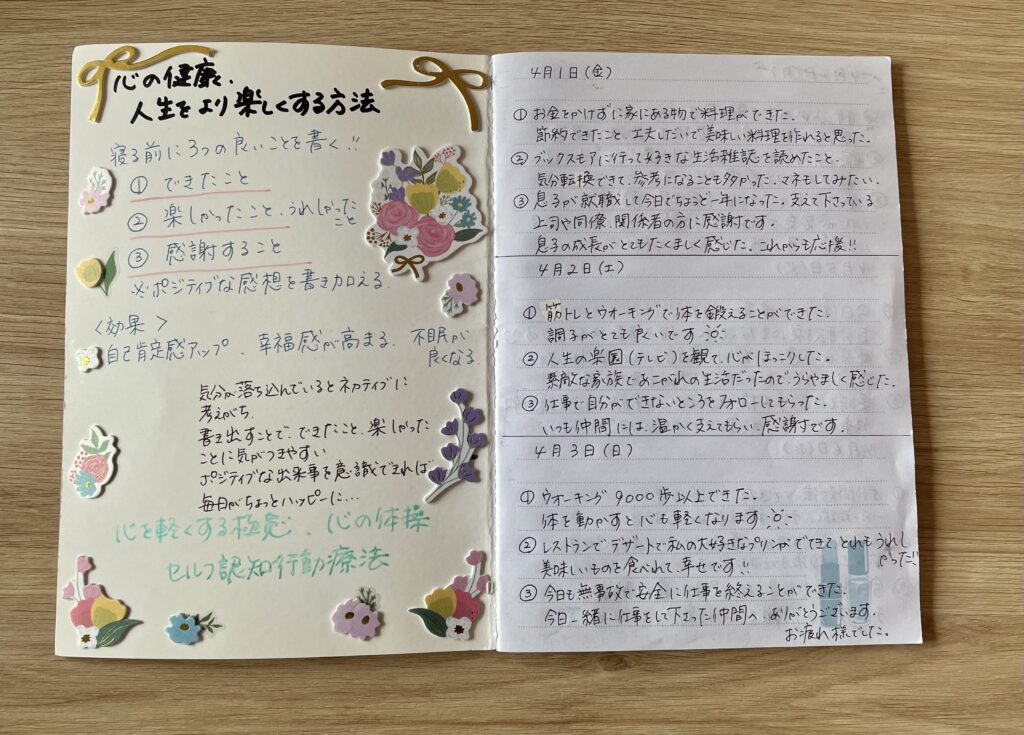 心の健康、
人生をより楽しくする方法
寝る前に3つの良いことを書く!!
① できたこと
② 楽しかったこと、うれしかった
こと
③ 感謝すること
※ポジティブな感想を書き加える。
<効果>
自己肯定感アップ、幸福感が高まる、不眠が
良くなる
気分が落ち込んでいるとネガティブに
考えがち
書き出すことで、できたこと、楽しかった
ことに気がつきやすい
ポジティブな出来事を意識できれば
毎日がちょっとハッピーに…
心を軽くする極意、心の体操
セルフ認知行動療法
4月1日(金)
① お金をかけずに家にある物で料理ができた。
節約できたこと、工夫しだいで美味しい料理を作れると思った。
② ブックスモアに行って好きな生活雑誌を読めたこと。
気分転換できて、参考になることも多かった。マネもしてみたい。
③ 息子が就職して今日でちょうど一年になった。支えて下さっている
上司や同僚、関係者の方に感謝です。
息子の成長がとてもたくましく感じた。これからも応援!!
4月2日(土)
① 筋トレとウオーキングで体を鍛えることができた。
調子がとても良いです
② 人生の楽園(テレビ)を観て、心がほっこりした。
素敵な家族であこがれの生活だったので、うらやましく感じた。
③ 仕事で自分ができないところをフォローしてもらった。
いつも仲間には、温かく支えてもらい、感謝です。
4月3日(日)
① ウオーキング 9000歩以上できた。
体を動かすと心も軽くなります
② レストランでデザートで私の大好きなプリンがでてきてとてもうれし
かった!!
美味しいものを食べれて幸せです!!
③ 今日も無事故で安全に仕事を終えることができた。
今日一緒に仕事をして下さった仲間へ、ありがとうございます。
お疲れ様でした。